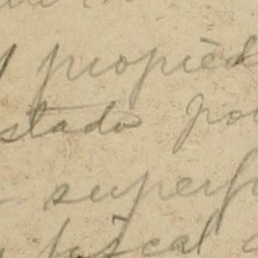 propied
stado po
superf
fiscal